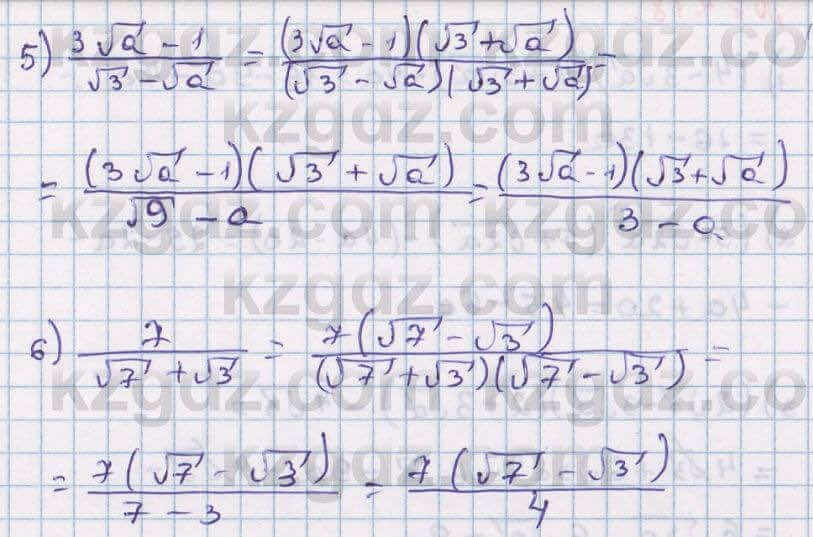 5) (3√a - 1)/(√3 - √a) = ((3√a - 1)(√3 + √a))/((√3 - √a)(√3 + √a)) =
= ((3√a - 1)(√3 + √a))/(√9 - a) = ((3√a - 1)(√3 + √a))/(3 - a)
6) 7/(√7 + √3) = (7(√7 - √3))/((√7 + √3)(√7 - √3)) =
= (7(√7 - √3))/(7 - 3) = (7(√7 - √3))/4
kzgdz.com